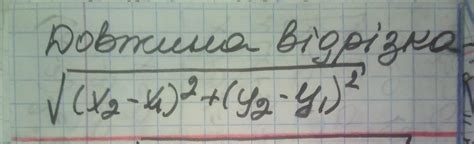 Довжина відрізка
√(x₂-x₁)²+(y₂-y₁)²